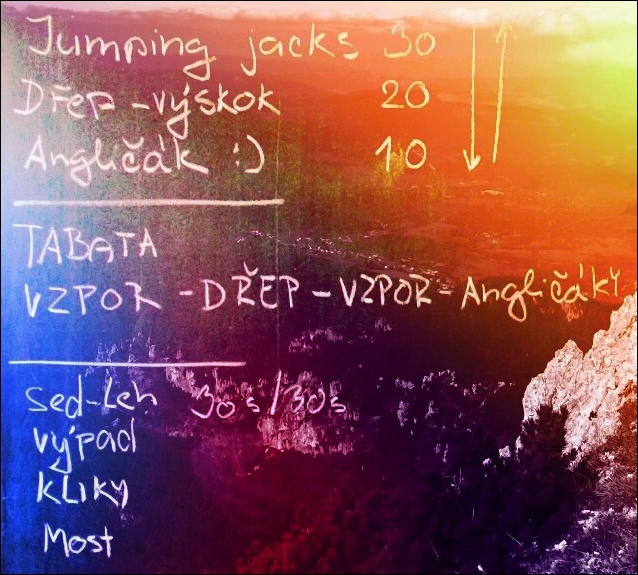 Jumping jacks 30
Dřep-výskok 20
Angličák :) 10
TABATA
VZPOR-DŘEP-VZPOR-Angličáky
Sed-Leh 30s/30s
Výpad
KLIKY
Most